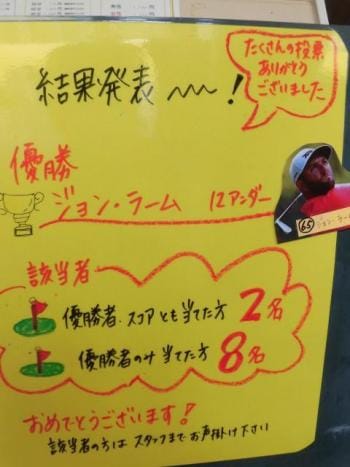 結果発表〜〜!
たくさんの投票
ありがとう
ございました
優勝
ジョン・ラーム 12アンダー
65 ジョン・ラーム
該当者
優勝者.スコアとも当てた方 2名
優勝者のみ当てた方 8名
おめでとうございます!
該当者の方は スタッフまでお声掛け下さい